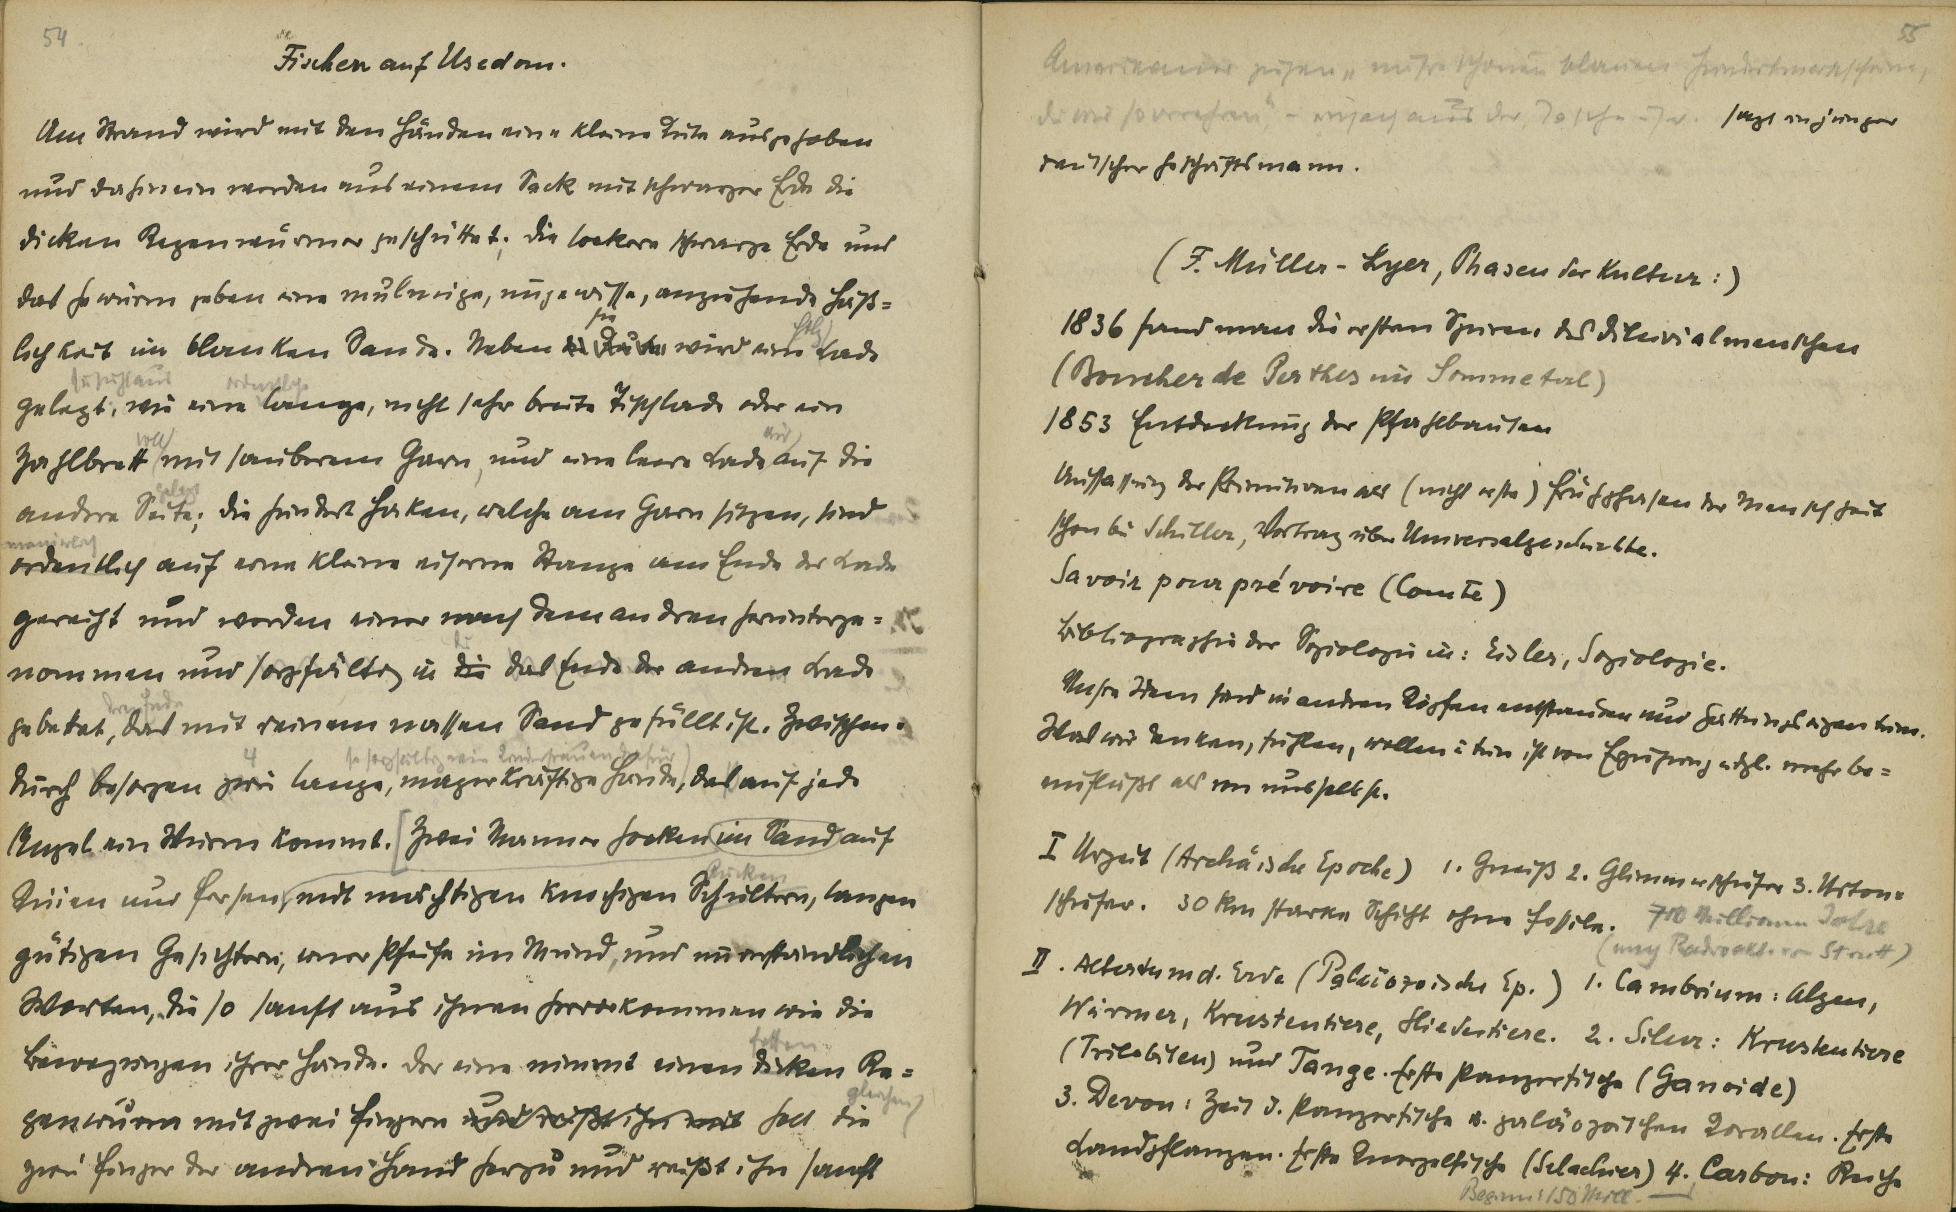 54
Fischer auf Usedom.
Am Strand wird mit den Händen eine kleine Grube ausgehoben
und dahinein werden aus einem Sack mit schwarzer Erde die
dicken Regenwürmer geschüttet; die lockere schwarze Erde und
das Gewürm geben eine mulmige, ungewisse, anziehende Häß=
lichkeit im blanken Sande. Neben wird eine Lade
gelegt; wie eine lange, nicht sehr breite Tischlade oder ein
ordentliche
voll
Zahlbrett mit sauberem Garn, und eine leere Lade auf die
andere Seite; die hundert Haken, welche am Garn sitzen, sind
manierlich
ordentlich auf eine kleine eiserne Stange am Ende der Lade
gereiht und werden einer nach dem andren herunterge=
nommen und sorgfältig in die das Ende der andren Lade
gebettet, das mit reinem nassen Sand gefüllt ist. Zwischen=
4
durch besorgen zwei lange, magerkräftige Hände, daß auf jede
Angel ein Wurm kommt. [Zwei Männer hocken im Sand auf
Rücken
Knien und Fersen, mit mächtigen knochigen Schultern, langen
gütigen Gesichtern, einer Pfeife im Mund, und unverständlichen
Worten, die so sanft aus ihnen hervorkommen wie die
fetten
Bewegungen ihrer Hände. Der eine nimmt einen dicken Re=
gleichen
genwurm mit zwei Fingern und reißt ihn mit holt die
zwei Finger der andren Hand herzu und reißt ihn sanft
55
Amerikaner ziehen „unsre schönen blauen Hundertmarkscheine,
die wir so verehren" – einfach aus der Tasche usw. sagt ein junger
deutscher Geschäftsmann.
(F. Müller-Lyer, Phasen der Kultur:)
1836 fand man die ersten Spuren des Diluvialmenschen
(Boucher de Perthes im Sommetal)
1853 Entdeckung der Pfahlbauten
Auffassung der Primitiven als (nicht erste) Frühphasen der Menschheit
schon bei Schiller, Vortrag über Universalgeschichte.
Savoir pour prévoire (Comte)
Bibliographie der Soziologie in: Eisler, Soziologie.
Unsre Ideen sind in andren Köpfen entstanden und Gattungseigentum.
Was wir denken, fühlen, wollen u tun ist von Erziehung udgl. mehr be=
einflußt als von uns selbst.
I Urzeit (Archäische Epoche) 1. Gneiß 2. Glimmerschiefer 3. Urton=
schiefer. 30 km starke Schicht ohne Fossile. 700 Millionen Jahre
(nach Radioakt. von Strutt)
II. Altertum d. Erde (Paläozoische Ep.) 1. Cambrium: Algen,
Würmer, Krustentiere, Gliedertiere. 2. Silur: Krustentiere
(Trilobiten) und Tange. Erste Panzerfische (Ganoide)
3. Devon: Zeit d. Panzerfische u. paläozoischen Korallen. Erste
Landpflanzen. Erste Knorpelfische (Selachier) 4. Carbon: Reiche
Beginn: 150 Mill.